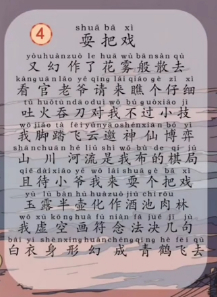 4
shuǎ bǎ xì
耍把戏
yòu huàn zuò le huā wù bān sàn qù
又幻作了花雾般散去
kàn guān lǎo yé qǐng lái qiáo gè zǐ xì
看官老爷请来瞧个仔细
tǔ huǒ tūn dāo duì wǒ bú guò xiǎo jì
吐火吞刀对我不过小技
wǒ jiǎo tà fēi yún yāo shén xiān bó yì
我脚踏飞云邀神仙博弈
shān chuān hé liú shì wǒ bù de qí jú
山川河流是我布的棋局
qiě dài xiǎo yé wǒ lái shuǎ gè bǎ xì
且待小爷我来耍个把戏
yù lù bàn hú huà zuò jiǔ chí ròu lín
玉露半壶化作酒池肉林
wǒ xū kōng huà fú niàn fǎ jué jǐ jù
我虚空画符念法决几句
bái yī shēn xíng huàn chéng qīng hè fēi qù
白衣身形幻成青鹤飞去